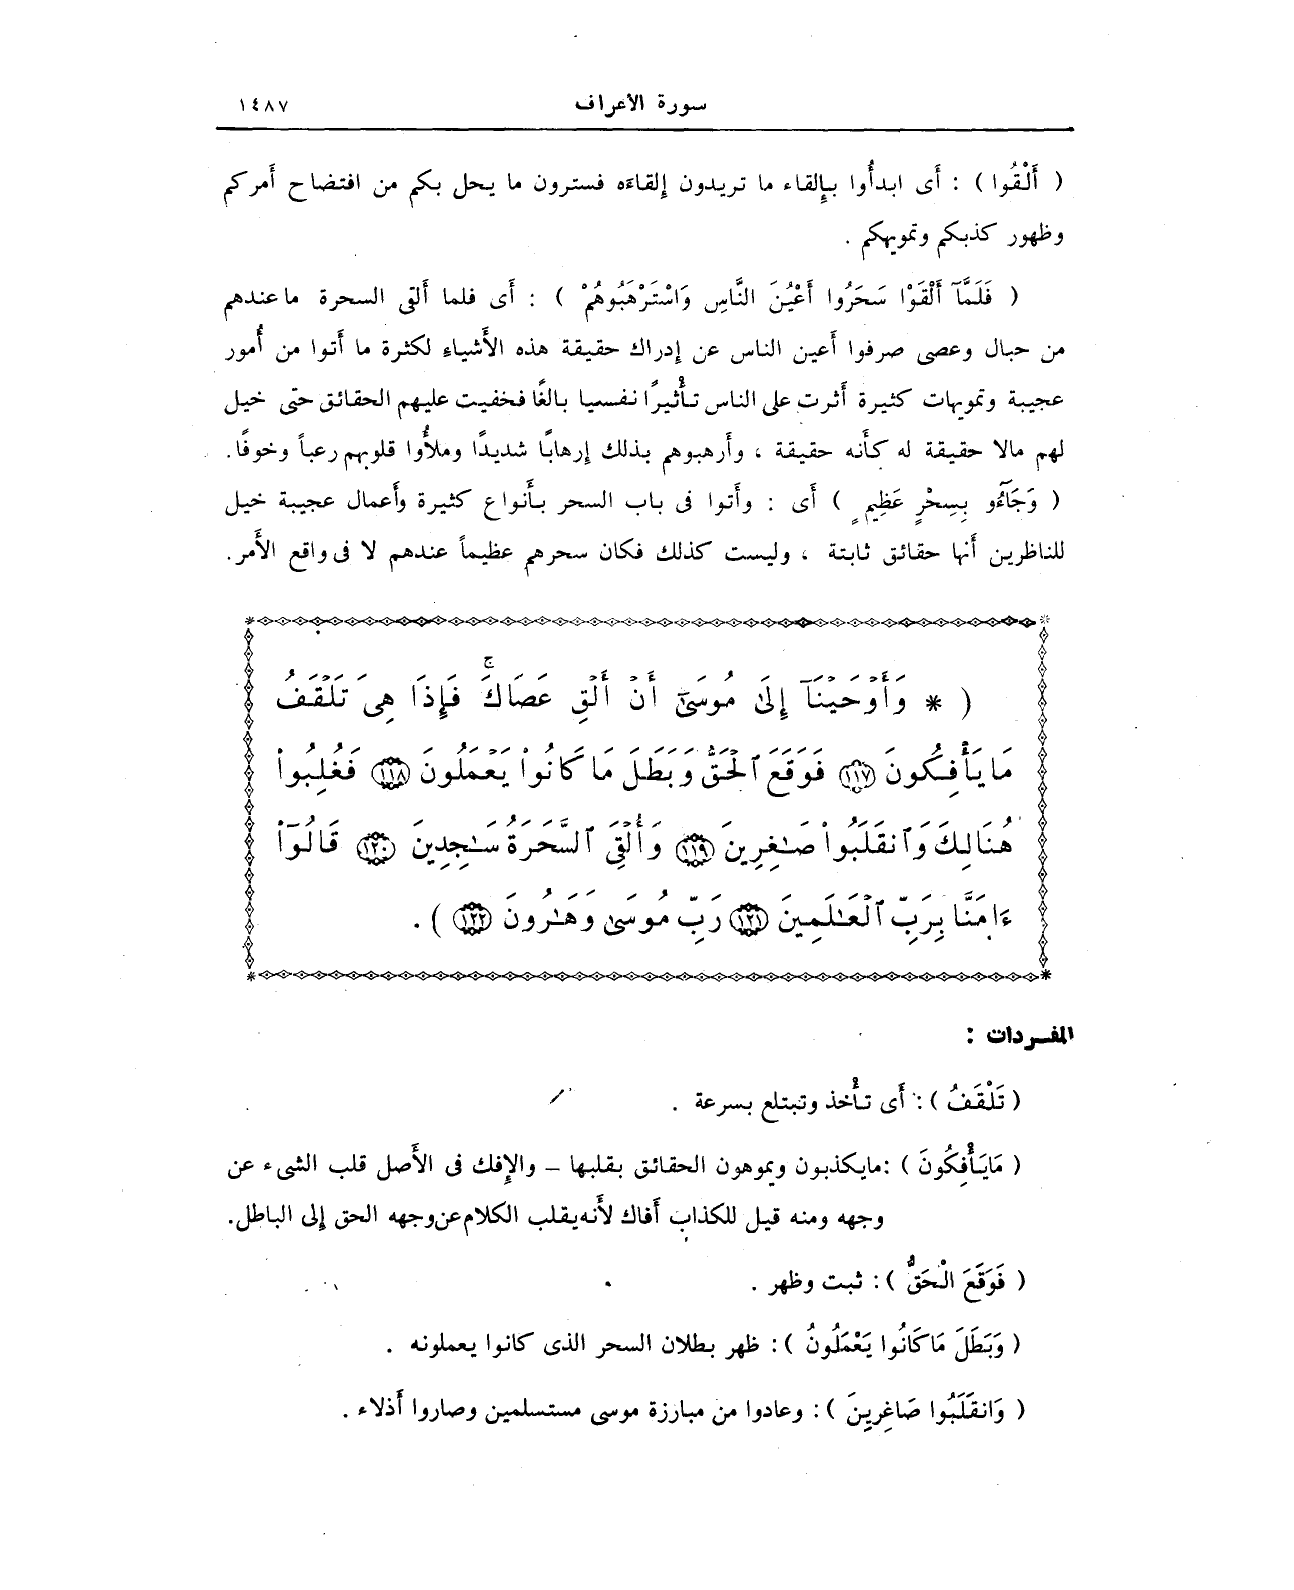 سورة الأعراف ١٤٨٧
( أَلْقُوا ) : أَى ابدأُوا بإِلقاء ما تريدون إِلقاءَه فسترون ما يحل بكم من افتضاح أَمركم
وظهور كذبكم وتمويهكم .
( فَلَمَّآ أَلْقَوْا سَحَرُوا أَعْيُنَ النَّاسِ وَاسْتَرْهَبُوهُمْ ) : أَى فلما أَلقى السحرة ما عندهم
من حبال وعصى صرفوا أَعين الناس عن إِدراك حقيقة هذه الأَشياءِ لكثرة ما أَتوا من أُمور
عجيبة وتمويهات كثيرة أَثرت على الناس تأْثيرًا نفسيا بالغًا فخفيت عليهم الحقائق حتى خيل
لهم مالا حقيقة له كأَنه حقيقة ، وأَرهبوهم بذلك إِرهابًا شديدًا وملأُوا قلوبهم رعباً وخوفًا.
( وَجَآءُو بِسِحْرٍ عَظِيمٍ ) أَى : وأَتوا فى باب السحر بأَنواع كثيرة وأَعمال عجيبة خيل
للناظرين أَنها حقائق ثابتة ، وليست كذلك فكان سحرهم عظيماً عندهم لا فى واقع الأَمر.
( * وَأَوْحَيْنَآ إِلَىٰ مُوسَىٰٓ أَنْ أَلْقِ عَصَاكَ ۚ فَإِذَا هِىَ تَلْقَفُ
مَا يَأْفِكُونَ ١١٧ فَوَقَعَ ٱلْحَقُّ وَبَطَلَ مَا كَانُوا۟ يَعْمَلُونَ ١١٨ فَغُلِبُوا۟
هُنَالِكَ وَٱنقَلَبُوا۟ صَـٰغِرِينَ ١١٩ وَأُلْقِىَ ٱلسَّحَرَةُ سَـٰجِدِينَ ١٢٠ قَالُوٓا۟
ءَامَنَّا بِرَبِّ ٱلْعَـٰلَمِينَ ١٢١ رَبِّ مُوسَىٰ وَهَـٰرُونَ ١٢٢ ) .
المفردات :
( تَلْقَفُ ) : أَى تأْخذ وتبتلع بسرعة .
( مَايَأْفِكُونَ ) :مايكذبون ويموهون الحقائق بقلبها – والإِفك فى الأَصل قلب الشىء عن
وجهه ومنه قيل للكذاب أَفاك لأَنه يقلب الكلام عن وجهه الحق إِلى الباطل.
( فَوَقَعَ الْحَقُّ ) : ثبت وظهر .
( وَبَطَلَ مَا كَانُوا يَعْمَلُونُ ) : ظهر بطلان السحر الذى كانوا يعملونه .
( وَانقَلَبُوا صَاغِرِينَ ) : وعادوا من مبارزة موسى مستسلمين وصاروا أَذلاء .